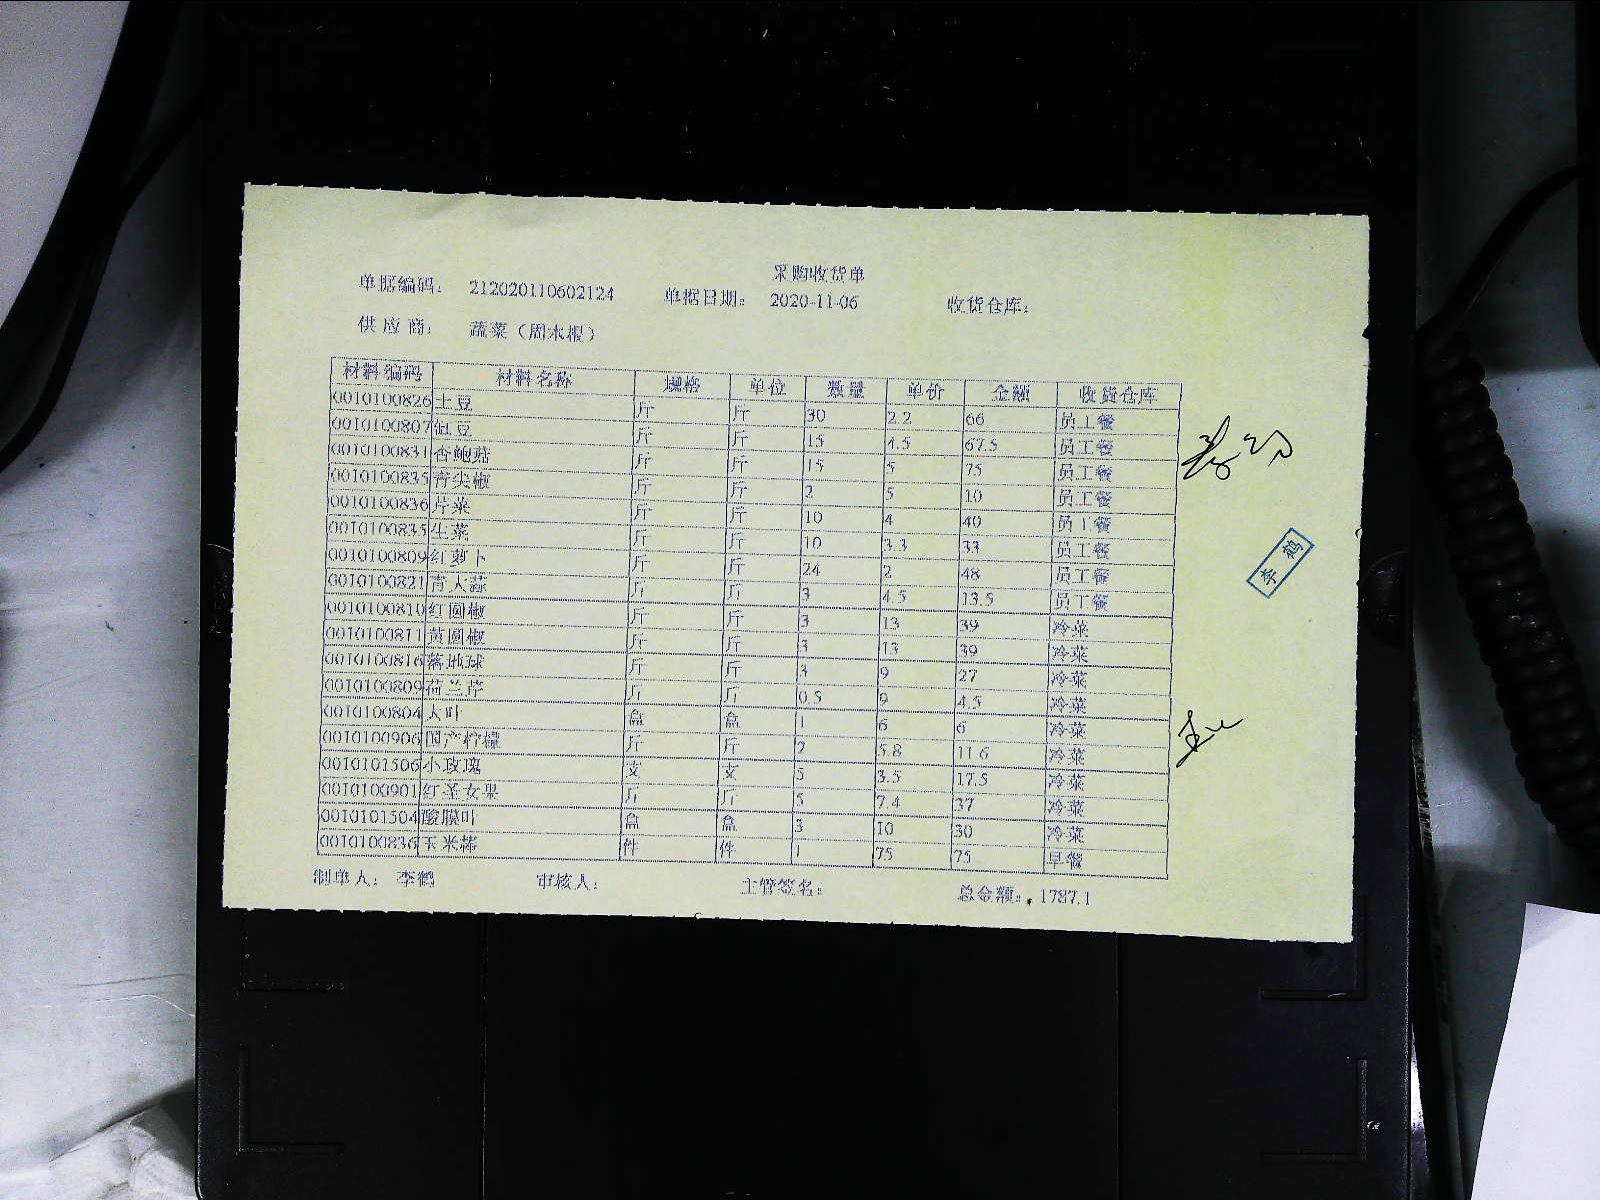 采购收货单
单据编码： 212020110602124 单据日期： 2020-11-06 收货仓库：
供应商： 蔬菜（周木根）
材料编码 材料名称 规格 单位 数量 单价 金额 收货仓库
0010100826 土豆 斤 斤 30 2.2 66 员工餐
0010100807 豇豆 斤 斤 15 4.5 67.5 员工餐
0010100831 杏鲍菇 斤 斤 15 5 75 员工餐
0010100835 青尖椒 斤 斤 2 5 10 员工餐
0010100836 芹菜 斤 斤 10 4 40 员工餐
0010100835 生菜 斤 斤 10 3.3 33 员工餐
0010100809 红萝卜 斤 斤 24 2 48 员工餐
0010100821 青大蒜 斤 斤 3 4.5 13.5 员工餐
0010100810 红圆椒 斤 斤 3 13 39 冷菜
0010100811 黄圆椒 斤 斤 3 13 39 冷菜
0010100816 落地球 斤 斤 3 9 27 冷菜
0010100809 荷兰芹 斤 斤 0.5 9 4.5 冷菜
0010100804 大叶 盒 盒 1 6 6 冷菜
0010100906 国产柠檬 斤 斤 2 5.8 11.6 冷菜
0010101506 小玫瑰 支 支 5 3.5 17.5 冷菜
0010100901 红圣女果 斤 斤 5 7.4 37 冷菜
0010101504 酸膜叶 盒 盒 3 10 30 冷菜
0010100836 玉米棒 件 件 1 75 75 早餐
制单人： 李鹤 审核人： 主管签名： 总金额： 1787.1
李鹤